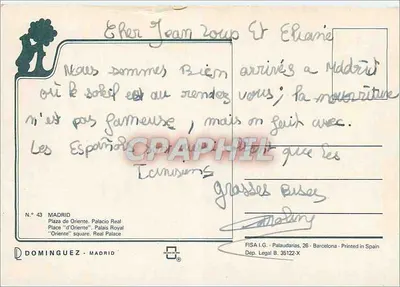 Cher Jean Loup Et Eliane
Nous sommes Bien arrivés a Maddrid
où le soleil est au rendez vous; la nourriture
n'est pas fameuse, mais on fait avec.
Les Españols sont que les
Tunisiens
Grosses Bises
CPAPHIL
N.º 43 MADRID
Plaza de Oriente. Palacio Real
Place "d'Oriente". Palais Royal
"Oriente" square. Real Palace
DOMINGUEZ - MADRID
FISA I.G. - Palaudarias, 26 - Barcelona - Printed in Spain
Dep. Legal B. 35122-X